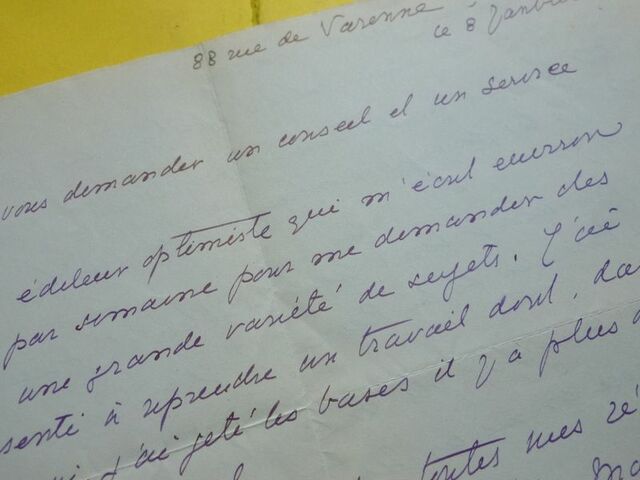 88 rue de Varenne
ce 8 Janvier
vous demander un conseil et un service
éditeur optimiste qui m'écrit environ
par semaine pour me demander des
une grande variété de sujets. J'ai
senti à reprendre un travail dont, da
j'ai jeté les bases il y a plus d
toutes mes ré